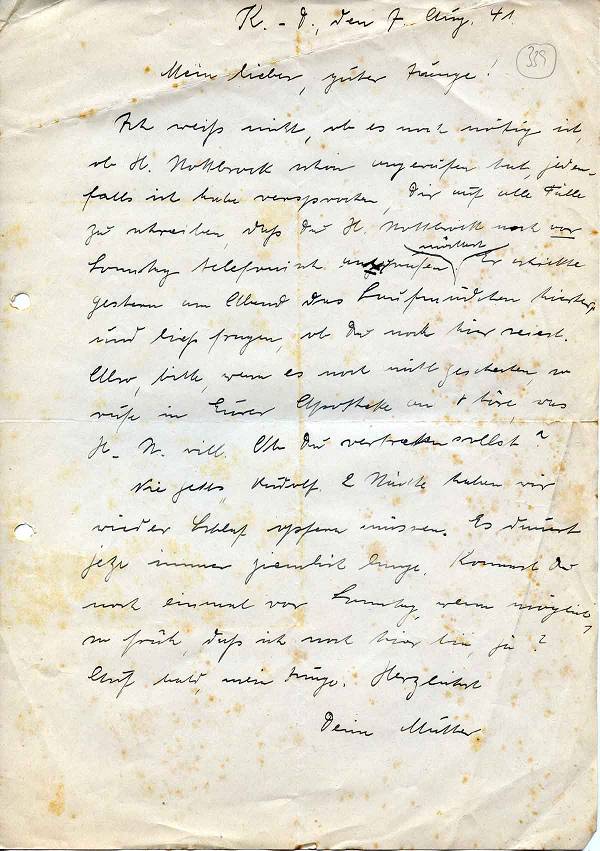 K.-D., den 7. Aug. 41.
339
Mein lieber, guter Junge!
Ich weiß nicht, ob es noch nötig ist,
ob H. Nottbrock schon angerufen hat, jeden-
falls ich habe versprochen, Dir auf alle Fälle
zu schreiben, daß Du H. Nottbrock noch vor
möchtest
Sonntag telefonisch anzurufen. Er schickte
gestern am Abend das Laufmädchen hierher
und ließ fragen, ob Du noch hier seiest.
Also, bitte, wenn es noch nicht geschehen, so
rufe in Eurer Apotheke an & höre, was
H. N. will. Ob Du vertreten sollst?
Wie geht's, Rudolf. 2 Nächte haben wir
wieder Schlaf opfern müssen. Es dauert
jetzt immer ziemlich lange. Kommst Du
noch einmal vor Sonntag, wenn möglich,
so früh, daß ich noch hier bin, ja?
Auf bald, mein Junge. Herzlichst
Deine Mutter.